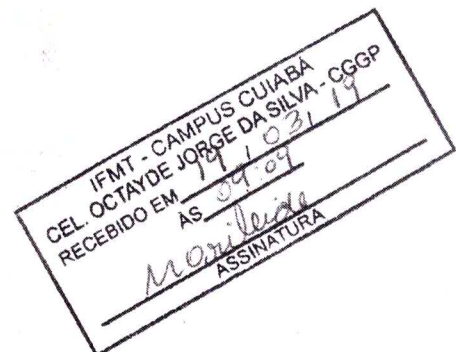 IFMT - CAMPUS CUIABÁ
CEL. OCTAYDE JORGE DA SILVA - CGGP
RECEBIDO EM 19 / 03 / 19
ÀS 09:09
Marileide
ASSINATURA